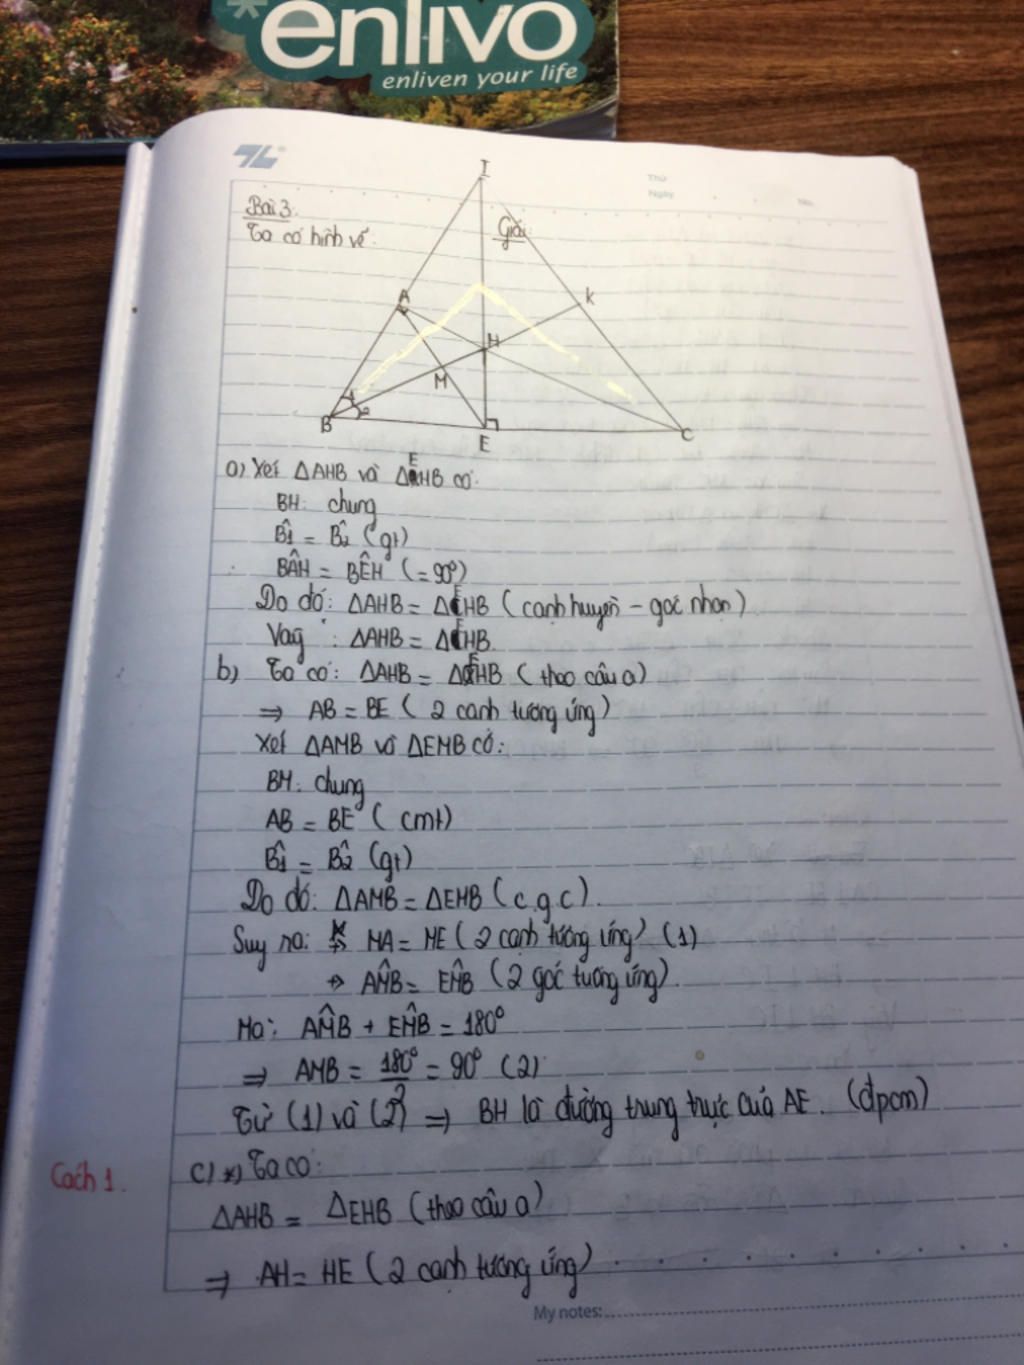 enlivo
enliven your life
Thứ
Ngày
No.
Bài 3:
Giải:
Ta có hình vẽ:
I
A
K
H
M
1
2
B
E
C
a) Xét ΔAHB và ΔEHB có:
BH: chung
B̂1 = B̂2 (gt)
BÂH = BÊH (= 90°)
Do đó: ΔAHB = ΔEHB (cạnh huyền - góc nhọn)
Vậy : ΔAHB = ΔEHB.
b) Ta có: ΔAHB = ΔEHB (theo câu a)
⇒ AB = BE (2 cạnh tương ứng)
Xét ΔAMB và ΔEMB có:
BM: chung
AB = BE (cmt)
B̂1 = B̂2 (gt)
Do đó: ΔAMB = ΔEMB (c.g.c).
Suy ra: → MA = ME (2 cạnh tương ứng) (1)
→ AM̂B = EM̂B (2 góc tương ứng).
Mà: AM̂B + EM̂B = 180°
⇒ AMB = 180°/2 = 90° (2)
Từ (1) và (2) ⇒ BH là đường trung trực của AE. (đpcm)
Cách 1. c) *) Ta có:
ΔAHB = ΔEHB (theo câu a)
⇒ AH = HE (2 cạnh tương ứng)
My notes: